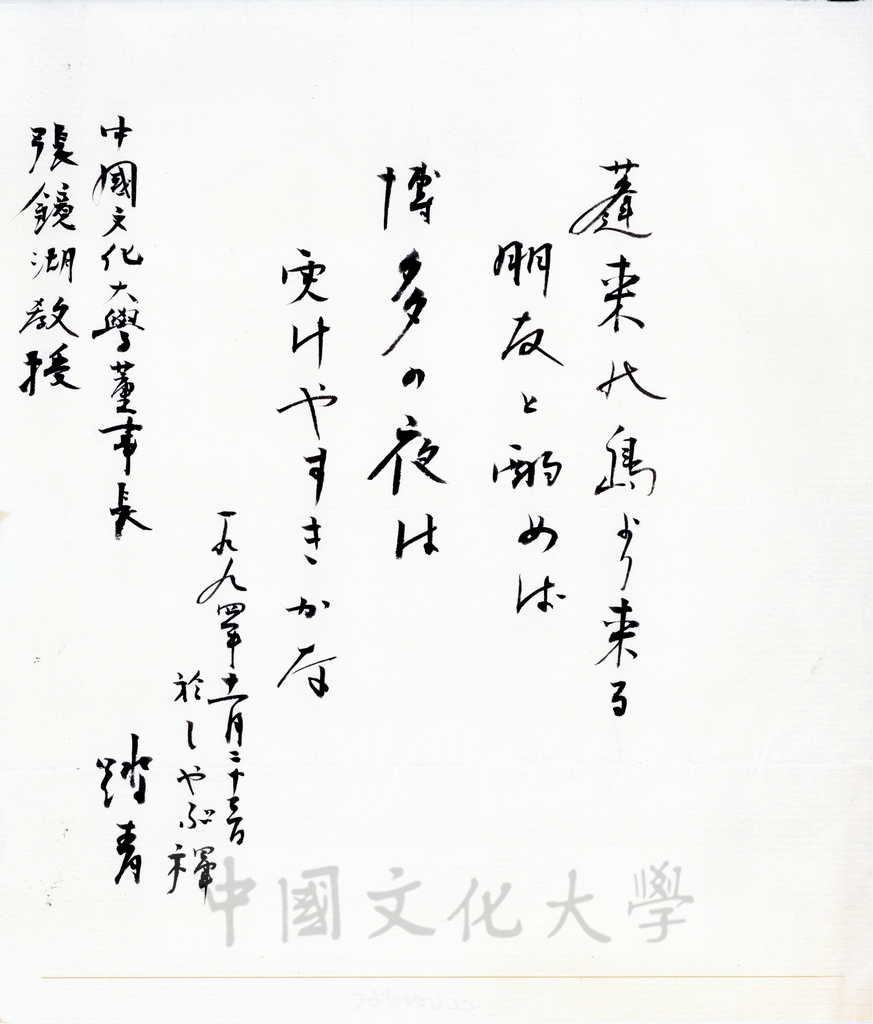 蓬来の島より来る
朋友と酌めば
博多の夜は
更けやすきかな
一九九四年十一月二十三日
於しやぶ禅
中國文化大學董事長
張鏡湖教授
踏青
中國文化大學